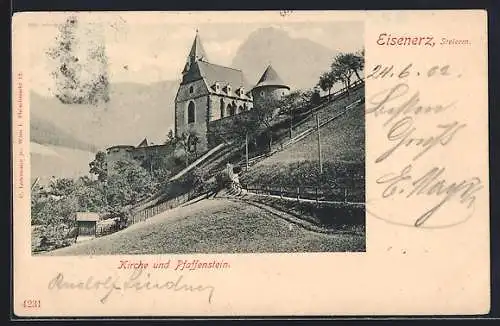 Eisenerz, Steierm.
24.6.02.
Besten
Gruß
E. Mayr
C. Ledermann jr. Wien I. Fleischmarkt 12.
Kirche und Pfaffenstein.
Rudolf Lindner
4231